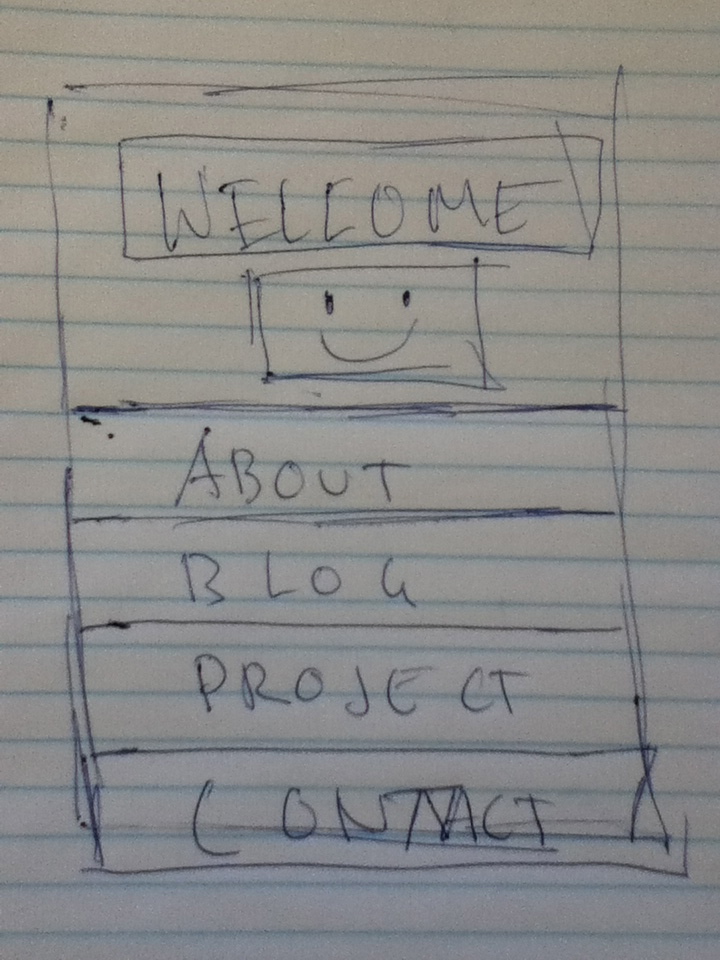 WELCOME
ABOUT
BLOG
PROJECT
CONTACT